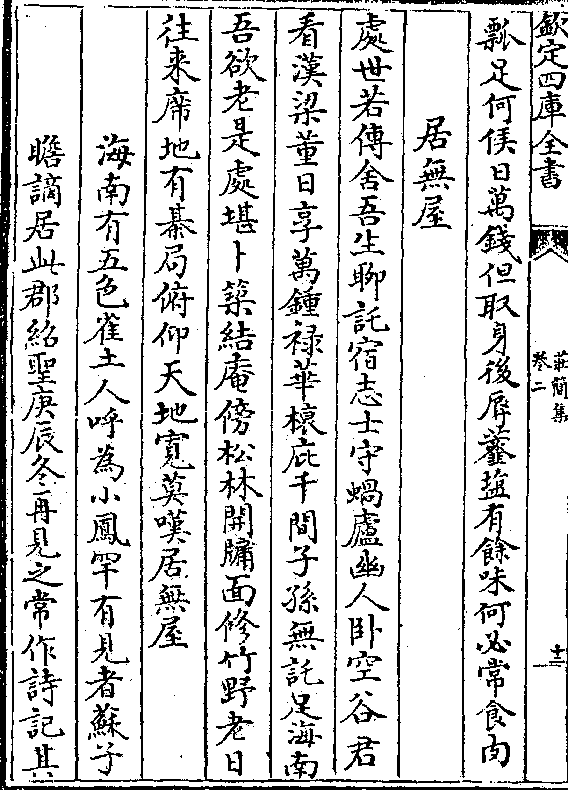 欽定四庫全書
莊簡集
卷二
十二
瓢足何俟日萬錢但取身後辱虀鹽有餘味何必常食肉
居無屋
處世若傳舍吾生聊託宿志士守蝸廬幽人卧空谷君
看漢梁董日享萬鍾祿華榱庇千間子孫無託足海南
吾欲老是處堪卜築結庵傍松林開牖面修竹野老日
往來席地有棊局俯仰天地寬莫嘆居無屋
海南有五色雀土人呼為小鳳罕有見者蘇子
瞻謫居此郡紹聖庚辰冬再見之常作詩記其